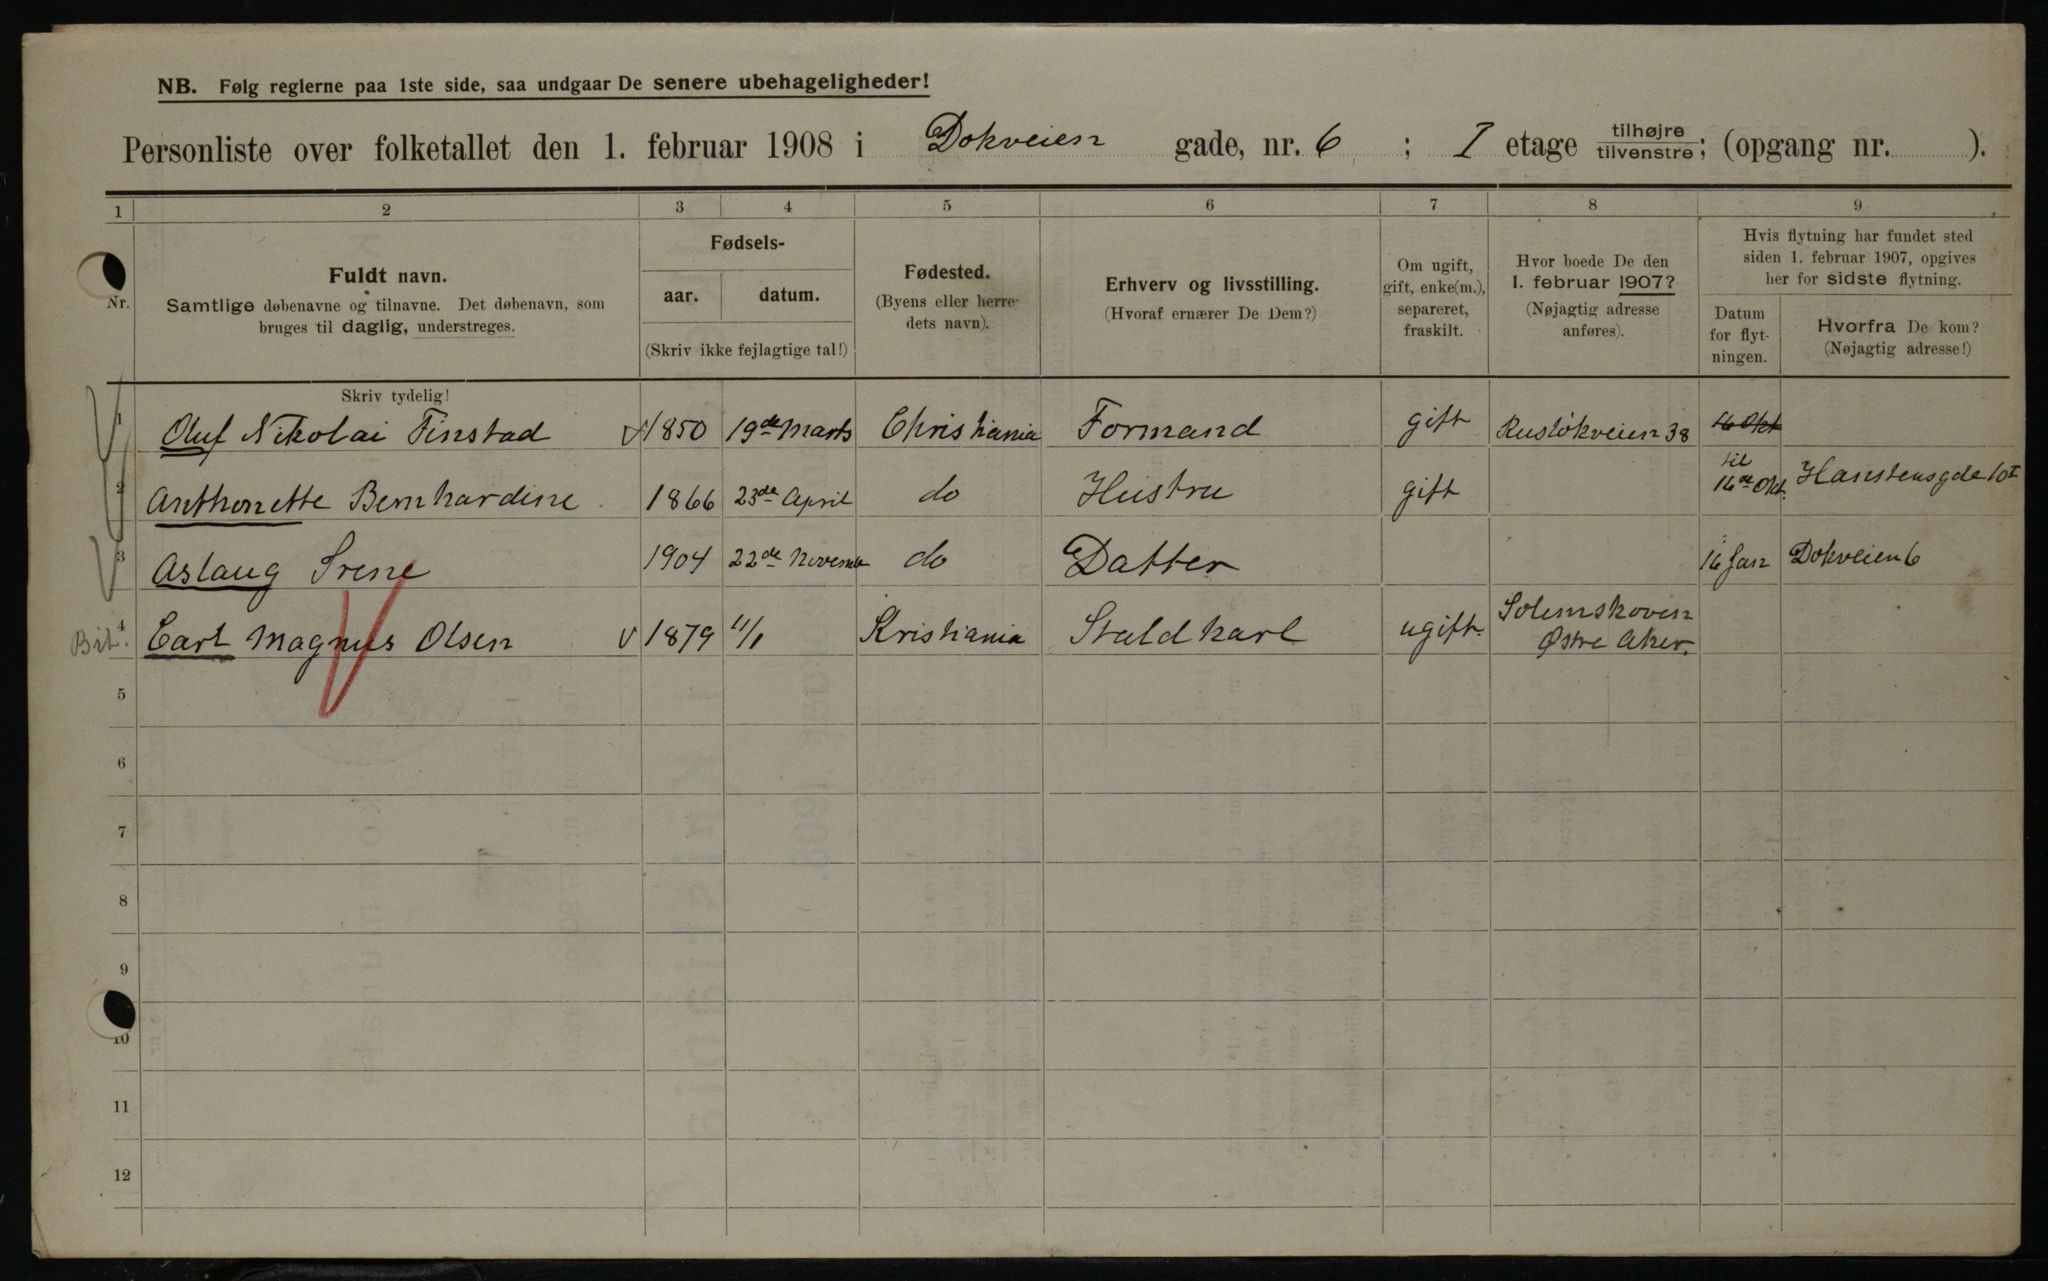 NB. Følg reglerne paa 1ste side, saa undgaar De senere ubehageligheder!
Personliste over folketallet den 1. februar 1908 i Dokveien gade, nr. 6 ; I etage tilhøjre/tilvenstre; (opgang nr. ).
1 2 3 4 5 6 7 8 9
Nr.
Fuldt navn.
Samtlige døbenavne og tilnavne. Det døbenavn, som
bruges til daglig, understreges.
Fødsels-
aar. datum.
(Skriv ikke fejlagtige tal!)
Fødested.
(Byens eller herre-
dets navn).
Erhverv og livsstilling.
(Hvoraf ernærer De Dem?)
Om ugift,
gift, enke(m.),
separeret,
fraskilt.
Hvor boede De den
1. februar 1907?
(Nøjagtig adresse
anføres).
Hvis flytning har fundet sted
siden 1. februar 1907, opgives
her for sidste flytning.
Datum
for flyt-
ningen.
Hvorfra De kom?
(Nøjagtig adresse!)
Skriv tydelig!
1 Oluf Nikolai Finstad 1850 19de Marts Christiania Formand gift Rusløkveien 38 16 Okt
til
2 Anthonette Bernhardine 1866 23de April do Hustru gift 16de Okt. Hanstensgde 10 I
3 Aslaug Irene 1904 22de Novembe do Datter 16 Jan Dokveien 6
Bit. 4 Carl Magnus Olsen v 1879 11/1 Kristiania Staldkarl ugift. Solemskoven
Østre Aker.
5
6
7
8
9
10
11
12